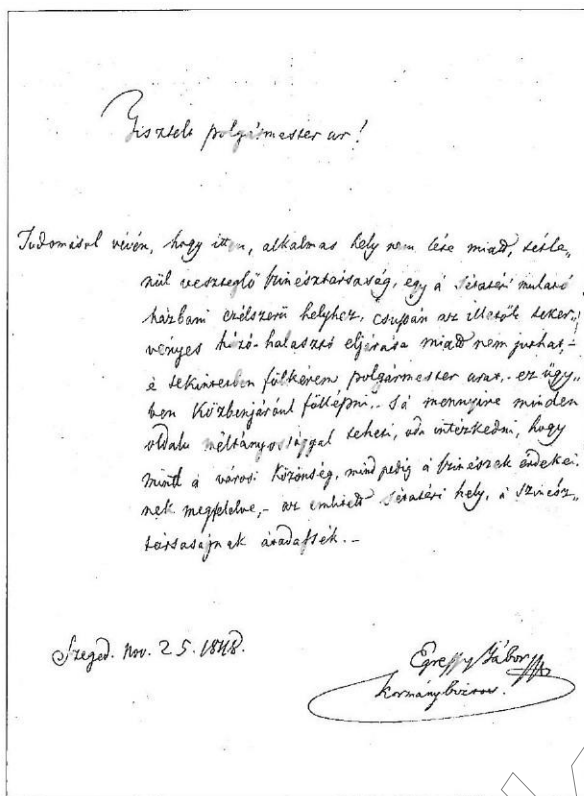 Tisztelt polgármester ur!
Tudomásul vévén, hogy itten, alkalmas hely nem léte miatt, tétle„
nül veszteglő szinésztársaság, egy a sétatéri mulató
házbani czélszerü helyhez, csupán az illetők teker„
vényes húzó-halasztó eljárása miatt nem juthat,-
é tekintetben fölkérem polgármester urat,- ez ügy„
ben közbenjáróul föllépni,- 's a mennyire minden
oldalu méltányossággal teheti, oda intézkedni, hogy
mint a városi közönség, mind pedig a szinészek érdekei„
nek megfelelve,- az emlitett sétatéri hely, a szinész„
társaságnak átadassék.-
Szeged. Nov. 25. 1848.
Egressy Gábor
kormánybiztos.